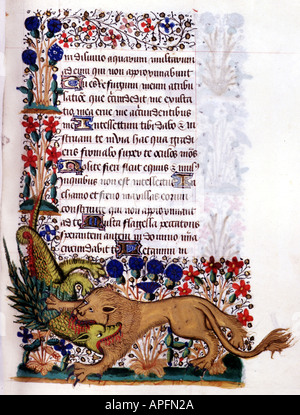 in diluvio aquarum multarum
ad eum non approximabunt
u es refugium meum a tribu
latione que circumdedit me exulta
tio mea erue me a circumdantibus
me Intellectum tibi dabo et in
struam te in via hac qua gradi
eris firmabo super te oculos meos
Nolite fieri sicut equus et mulus
quibus non est intellectus In
chamo et freno maxillas eorum
constringe qui non approximant
ad te Multa flagella peccatoris
sperantem autem in domino mia
circumdabit Letamini in
alamy
Image ID: APFN2A
www.alamy.com